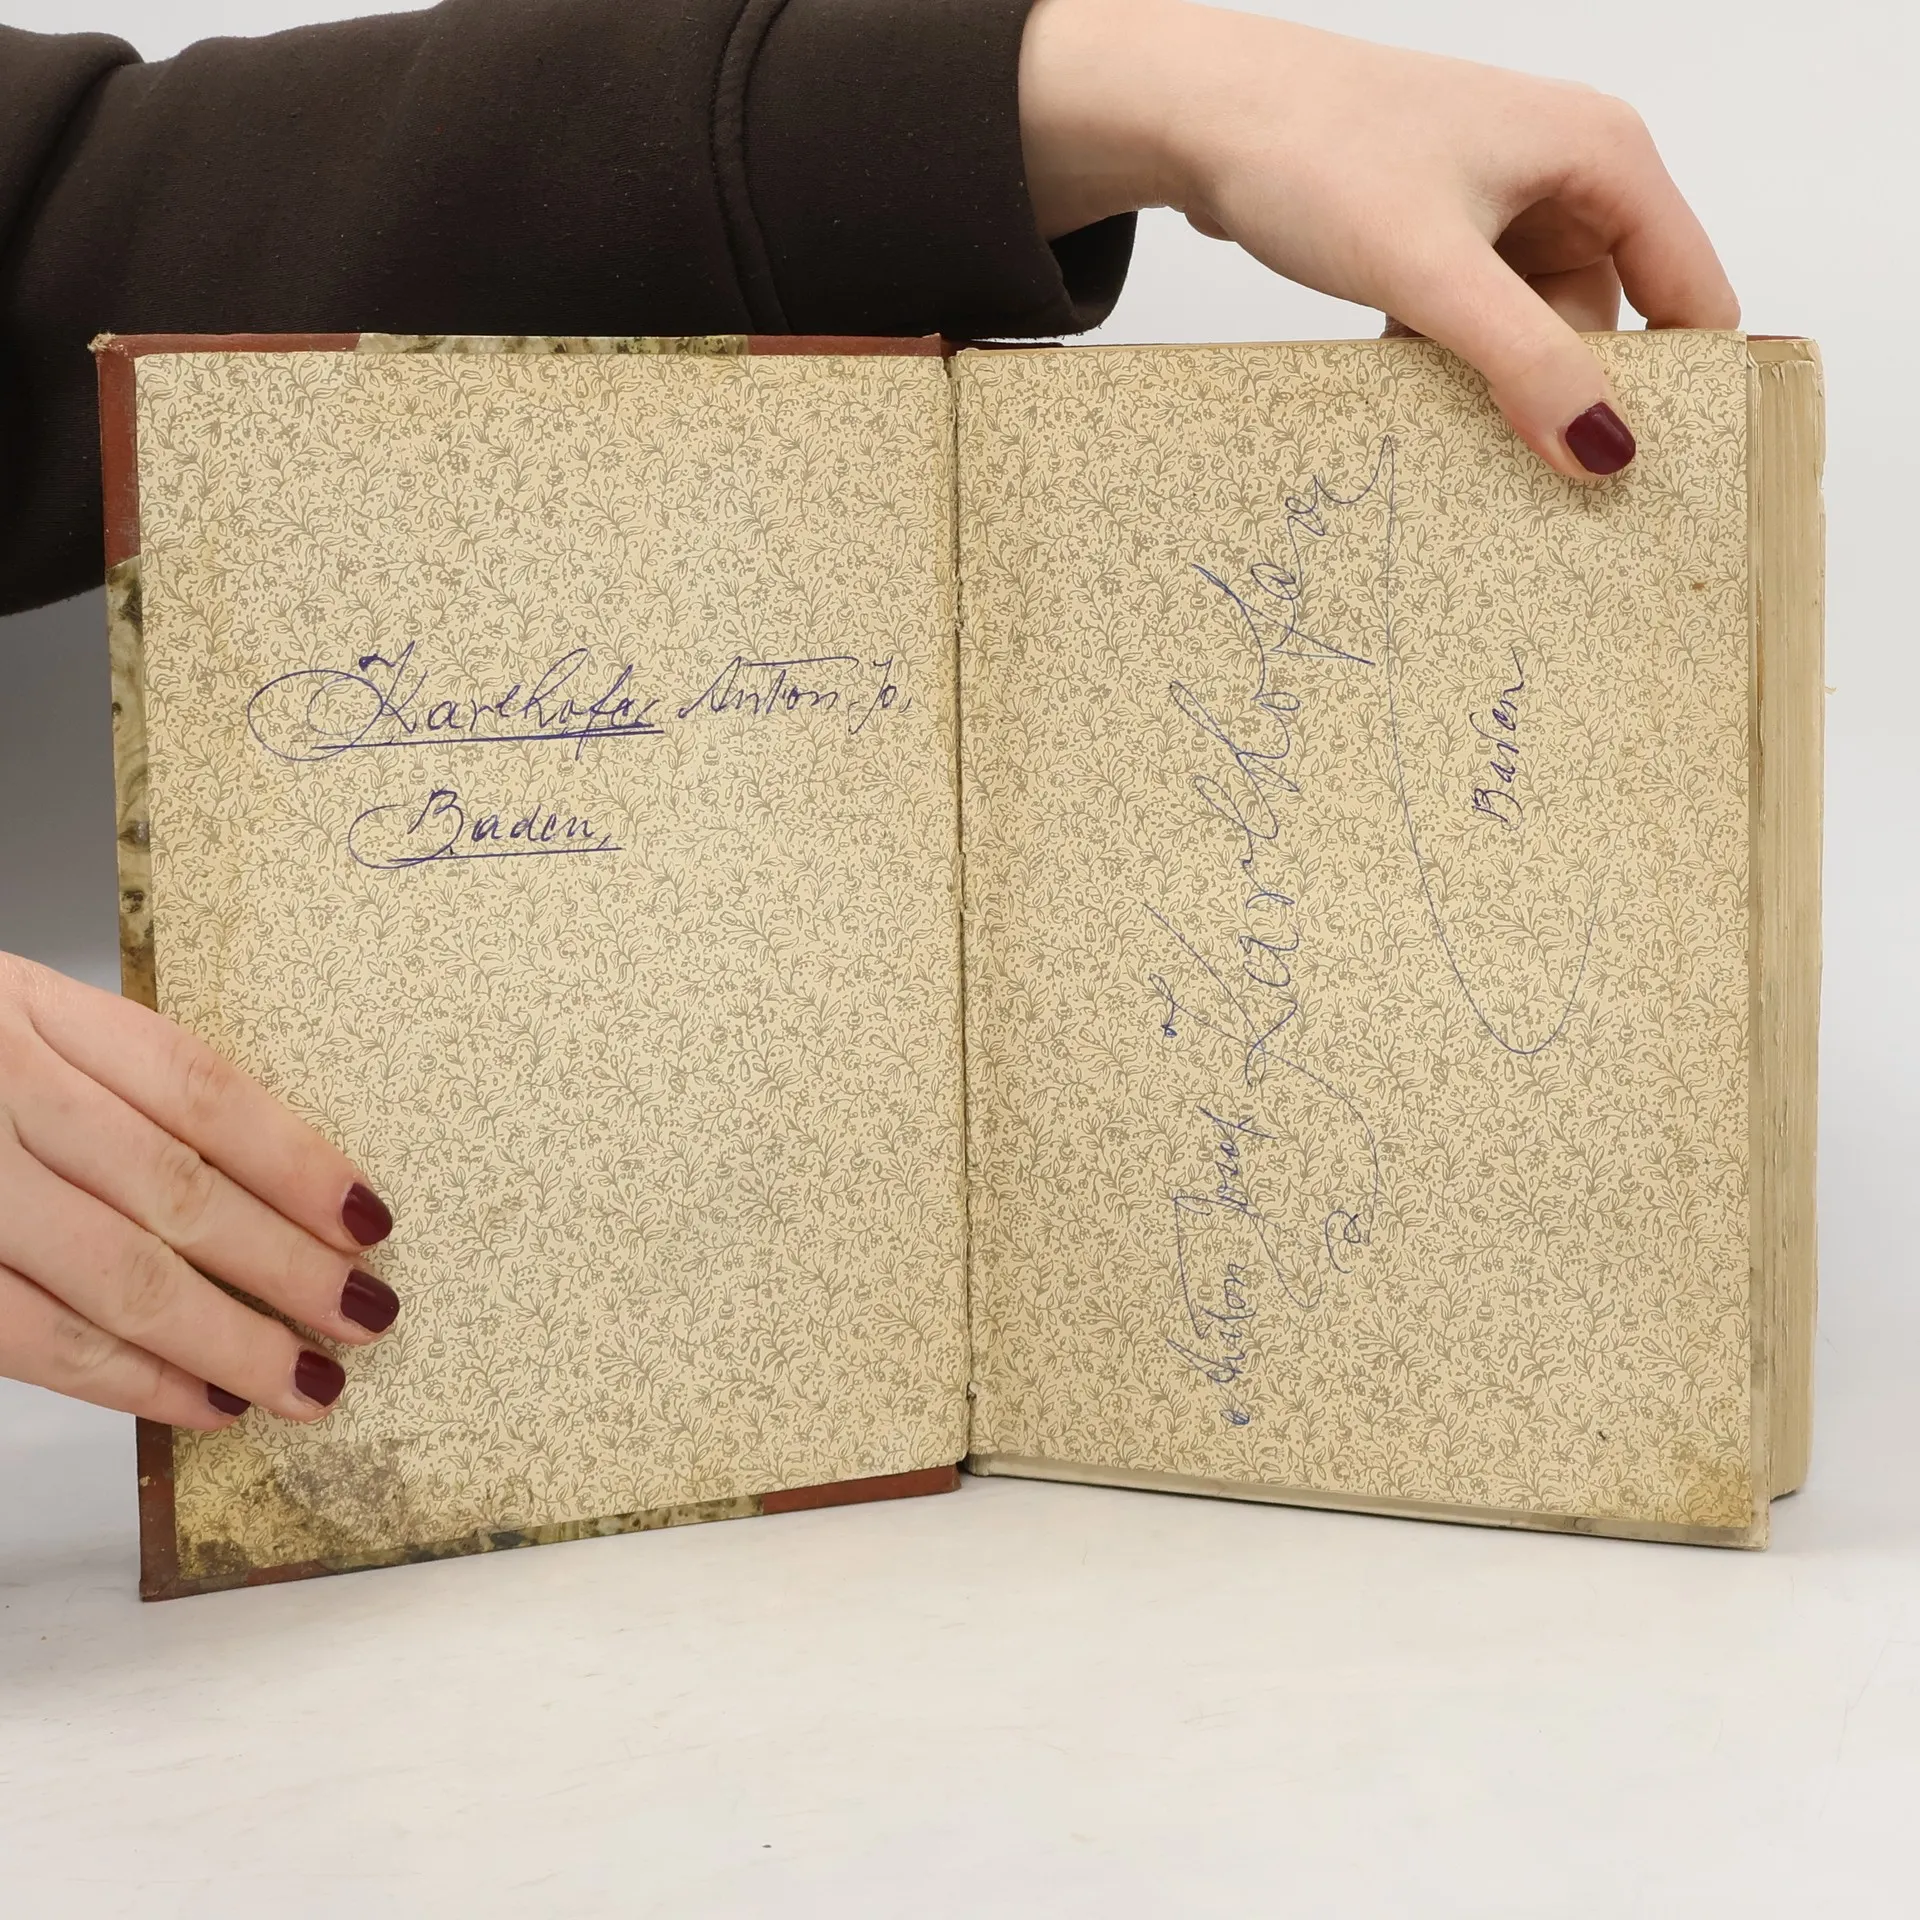 Karlhofer Anton Jo,
Baden,
Anton Josef Karlhofer
Baden